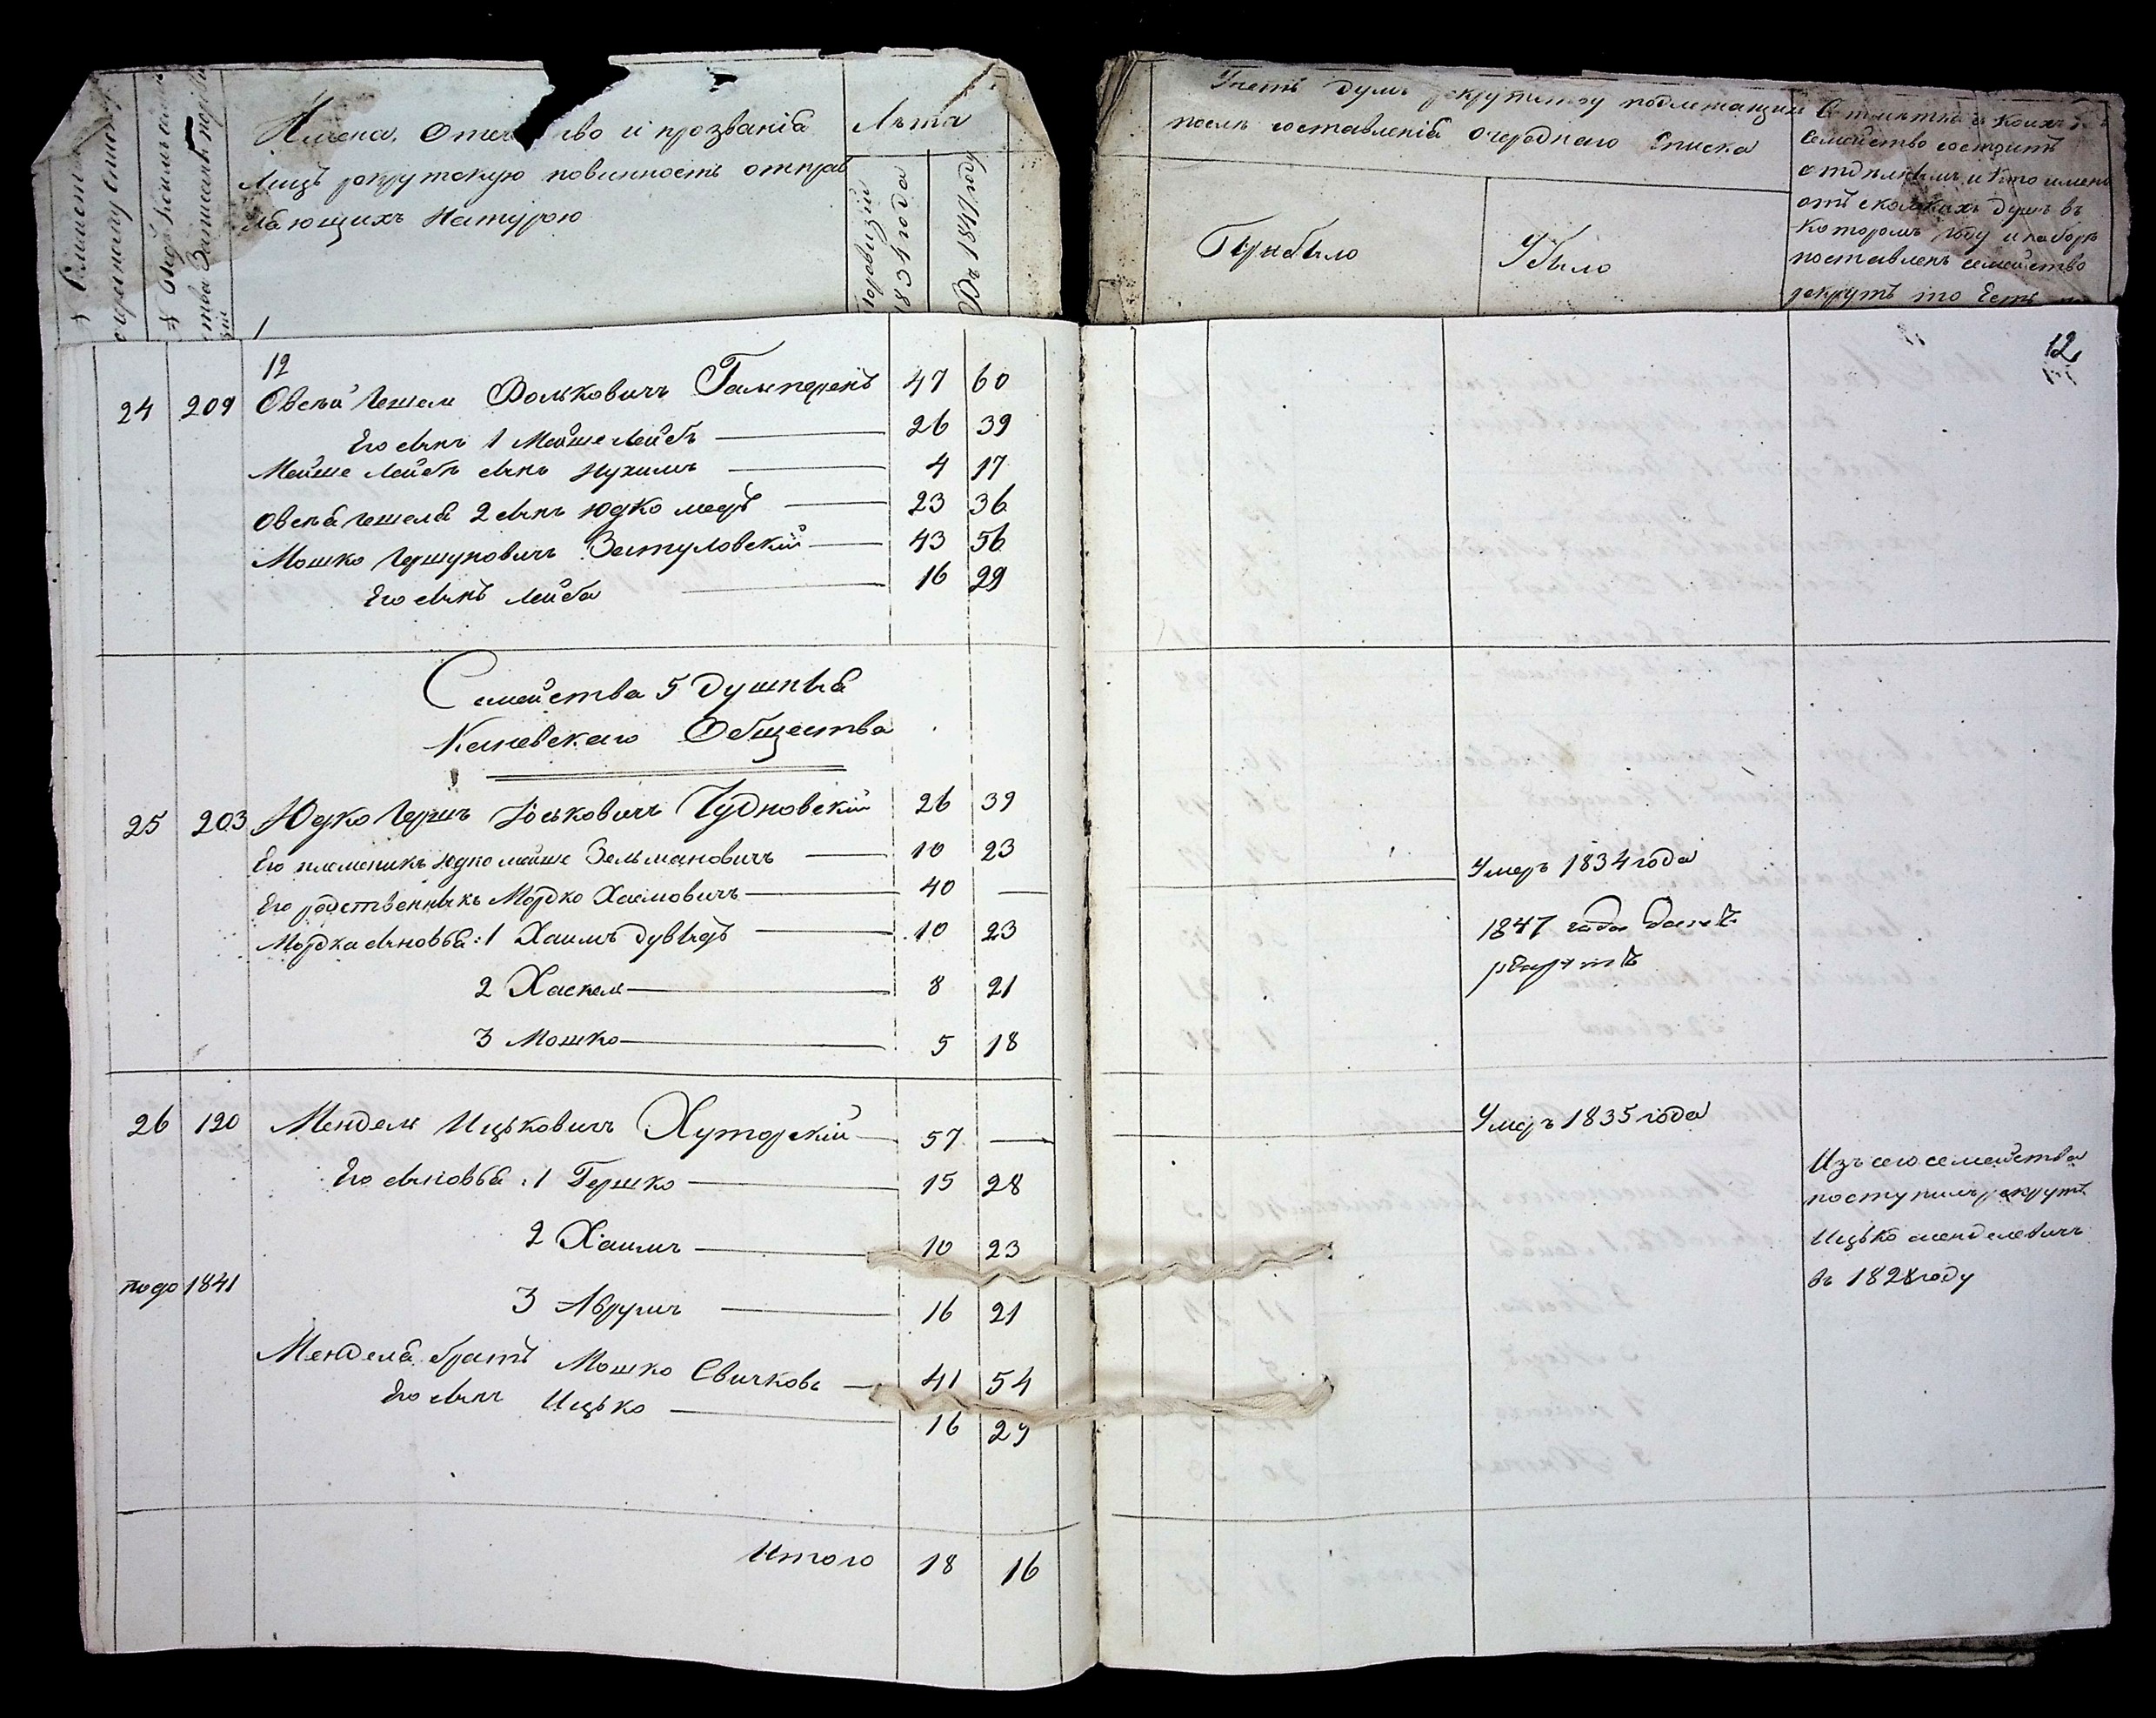 Имена, Отечество и прозванія
Лицъ рекрутскую повинность отправ
ляющихъ Натурою
Лѣта
По ревизіи
1834 года
Въ 1847 году
Учетъ душъ рекрутству подлежащихъ
послѣ составленія Очереднаго Списка
Прибыло
Убыло
семейство состоитъ
въ
которомъ году и наборѣ
поставленъ семейство
рекрутъ то есть
12
12
24 209 Овсѣй Гешель Фольковичъ Гальперенъ 47 60
Его сынъ 1 Мойше Лейбъ 26 39
Мойше Лейбъ сынъ Нухимъ 4 17
Овсѣя Гешеля 2 сынъ Юдко 23 36
Мошко Гершуновичъ Заступовскій 43 56
Его сынъ Лейба 16 29
Семейства 5 душныя
Каневскаго Общества
25 203 Юдко Гершъ Іоськовичъ Чудновскій 26 39
Его племеникъ Юдко мойше Зельмановичъ 10 23
Его родственныкъ Мордко Хаимовичъ 40 —
Умеръ 1834 года
Мордка сыновья: 1 Хаимъ Дувыдъ 10 23
1847 года
2 Хаскель 8 21
рекрутъ
3 Мошко 5 18
26 120 Мендель Ицьковичъ Хуторскій 57 —
Умеръ 1835 года
Его сыновья: 1 Гершко 15 28
2 Хаимъ 10 23
подо 1841
3 Аврумъ 16 21
Менделя братъ Мошко 41 54
Его сынъ Ицько 16 29
Изъ сего семейства
поступилъ рекрутъ
Ицько менделевичъ
въ 1828 году
Итого 18 16